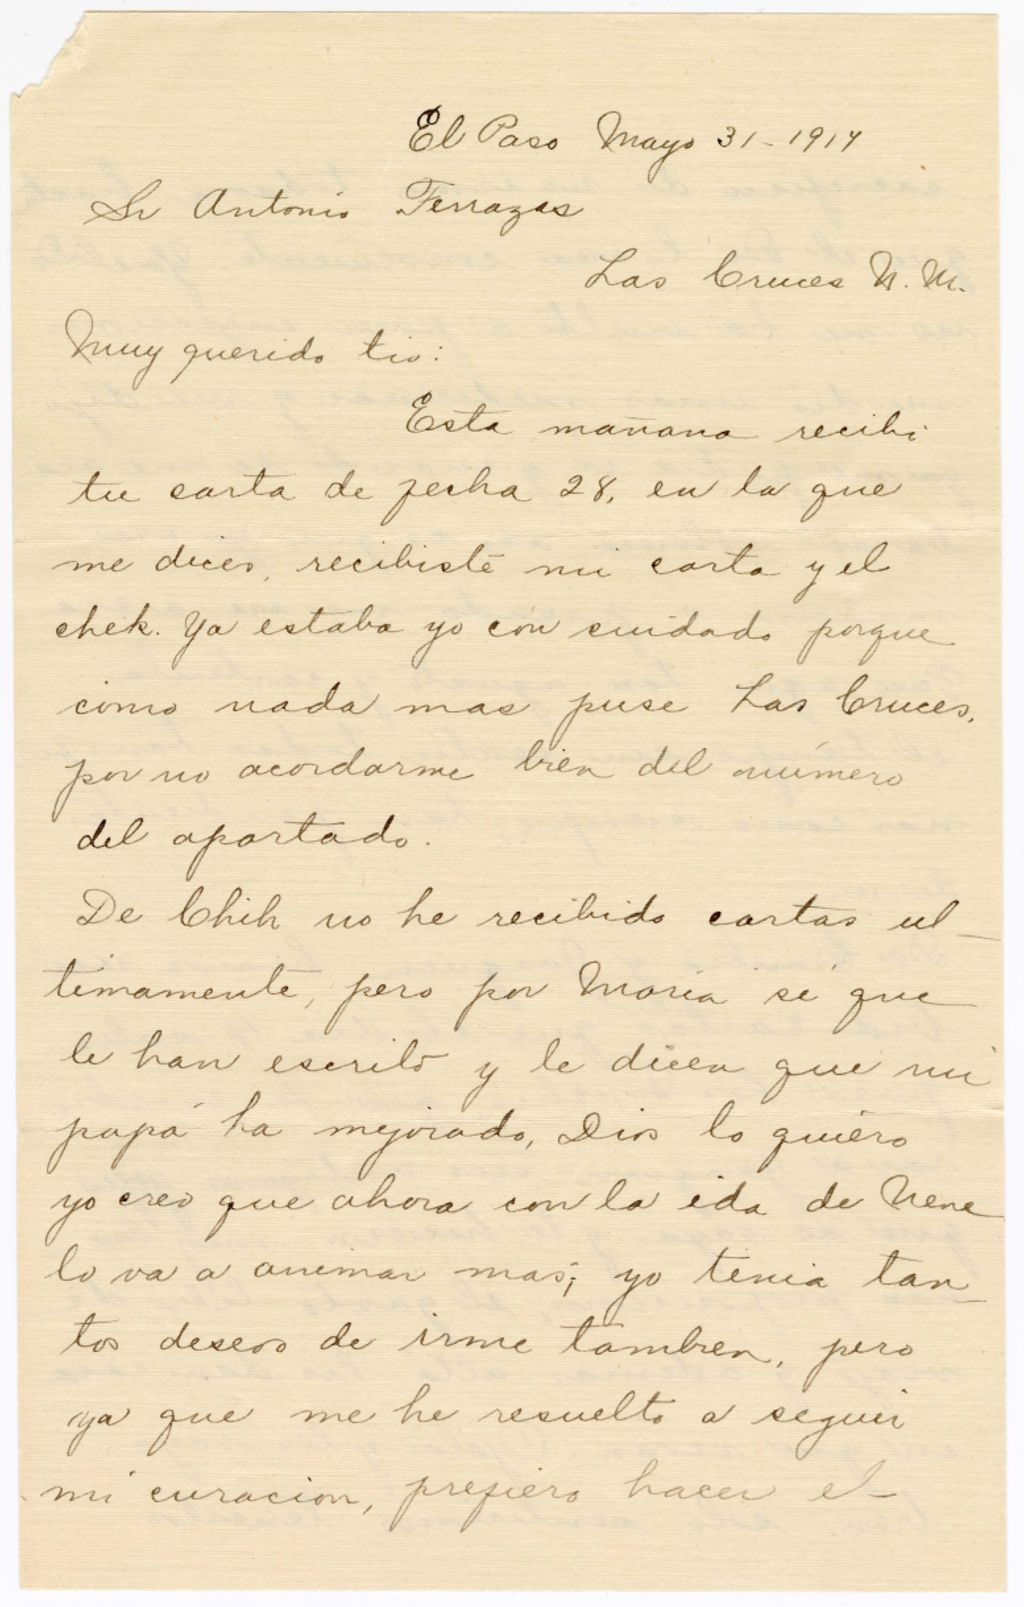 El Paso Mayo 31-1914
Sr Antonio Terrazas
Las Cruces N. M.
Muy querido tio:
Esta mañana recibi
tu carta de fecha 28, en la que
me dices, recibiste mi carta y el
chek. Ya estaba yo con cuidado porque
como nada mas puse Las Cruces,
por no acordarme bien del número
del apartado.
De Chih no he recibido cartas ul-
timamente, pero por Maria sé que
le han escrito y le dicen que mi
papá ha mejorado, Dios lo quiera
yo creo que ahora con la ida de Nene
lo va a animar mas; yo tenia tan-
tos deseos de irme tambien, pero
ya que me he resuelto a seguir
mi curacion, prefiero hacer el-